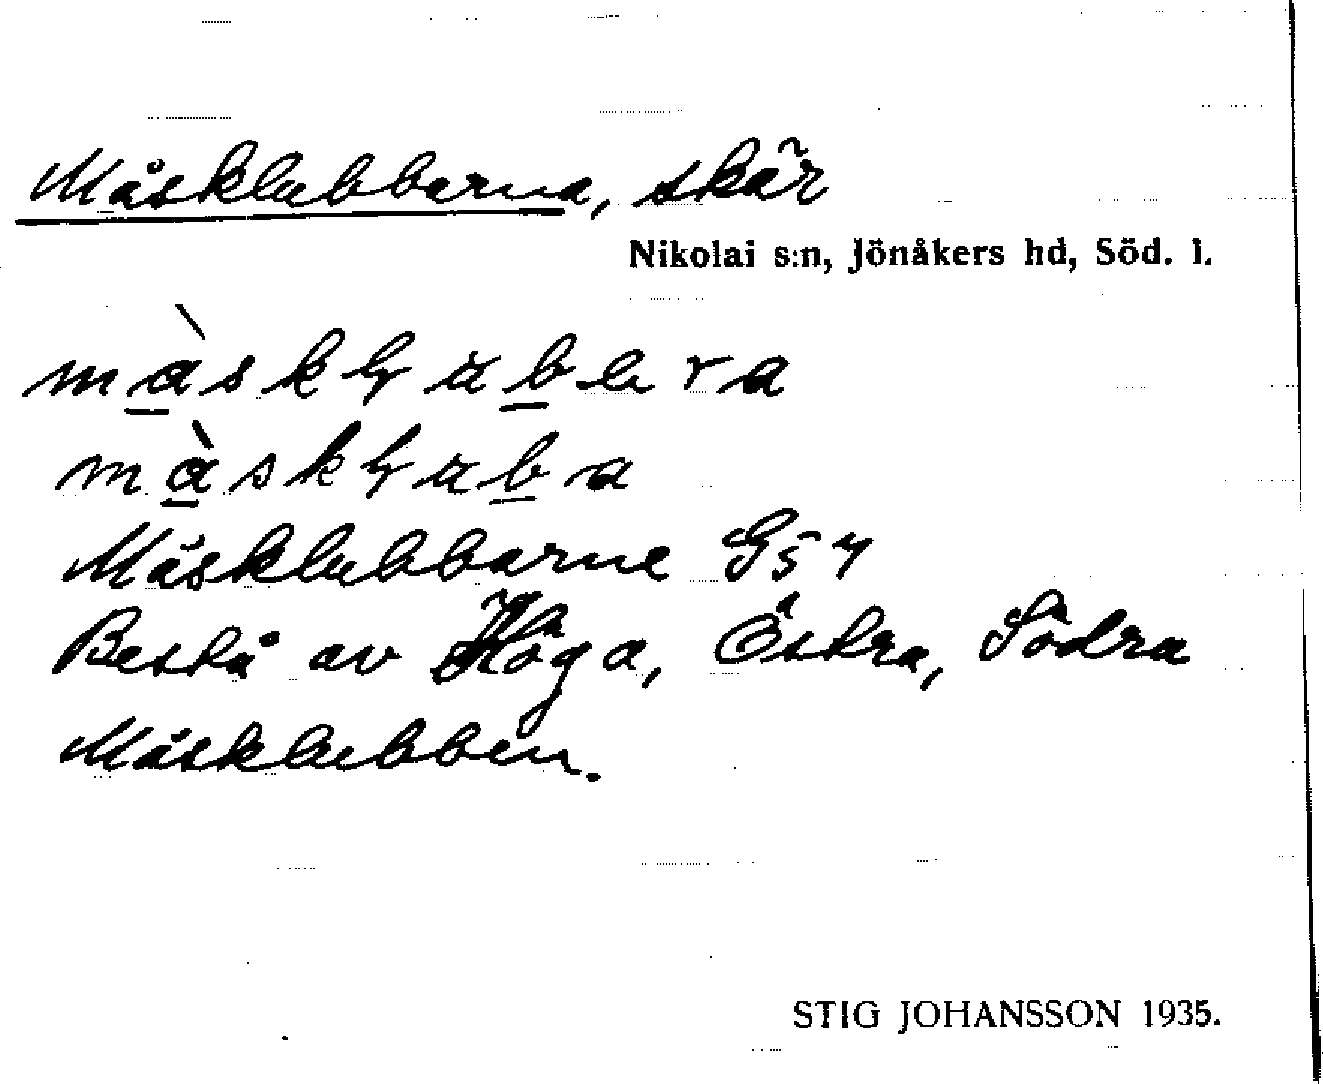 Måsklubbarna, skär
Nikolai s:n, Jönåkers hd, Söd. l.
Måsklubbarne GS 4
Bestå av Höga, Östra, Södra
Måsklubben.
STIG JOHANSSON 1935.